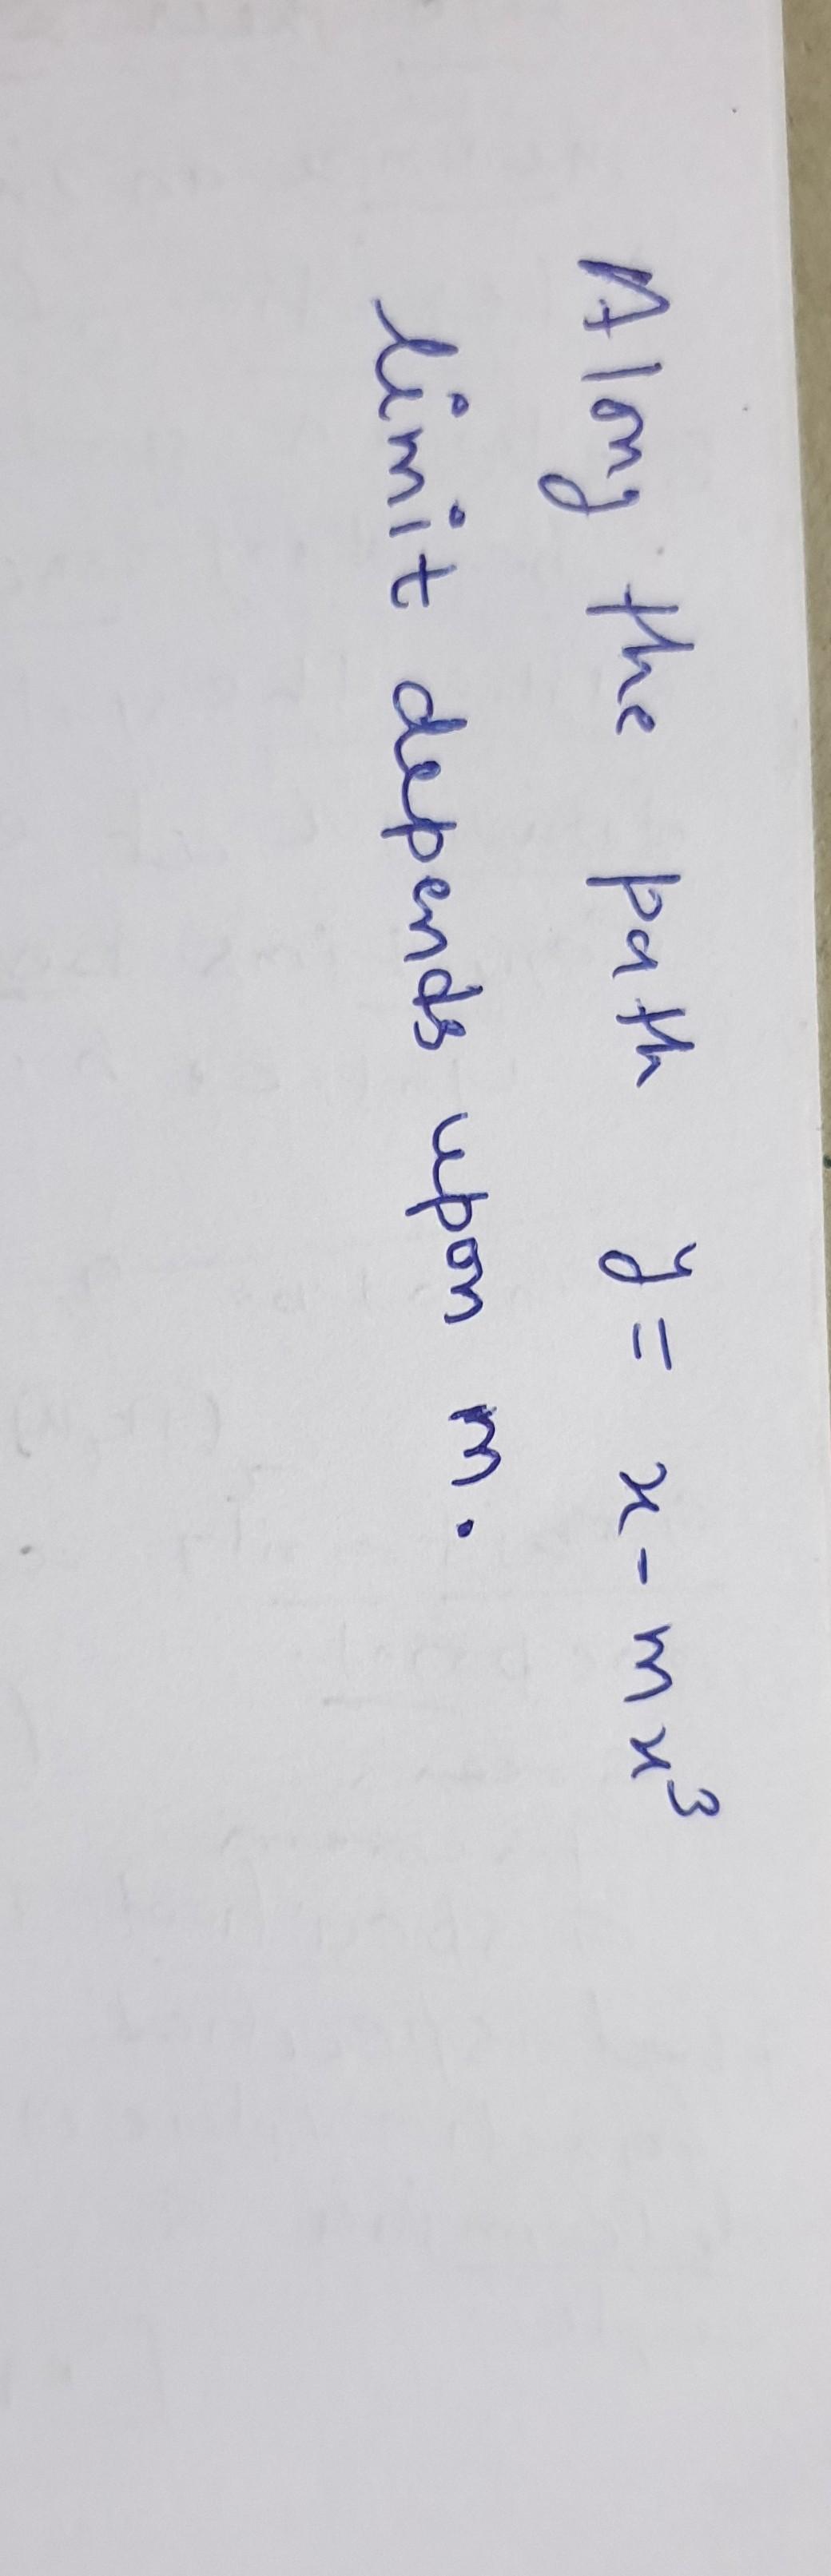 Along the path y = x - mx³
limit depends upon m.